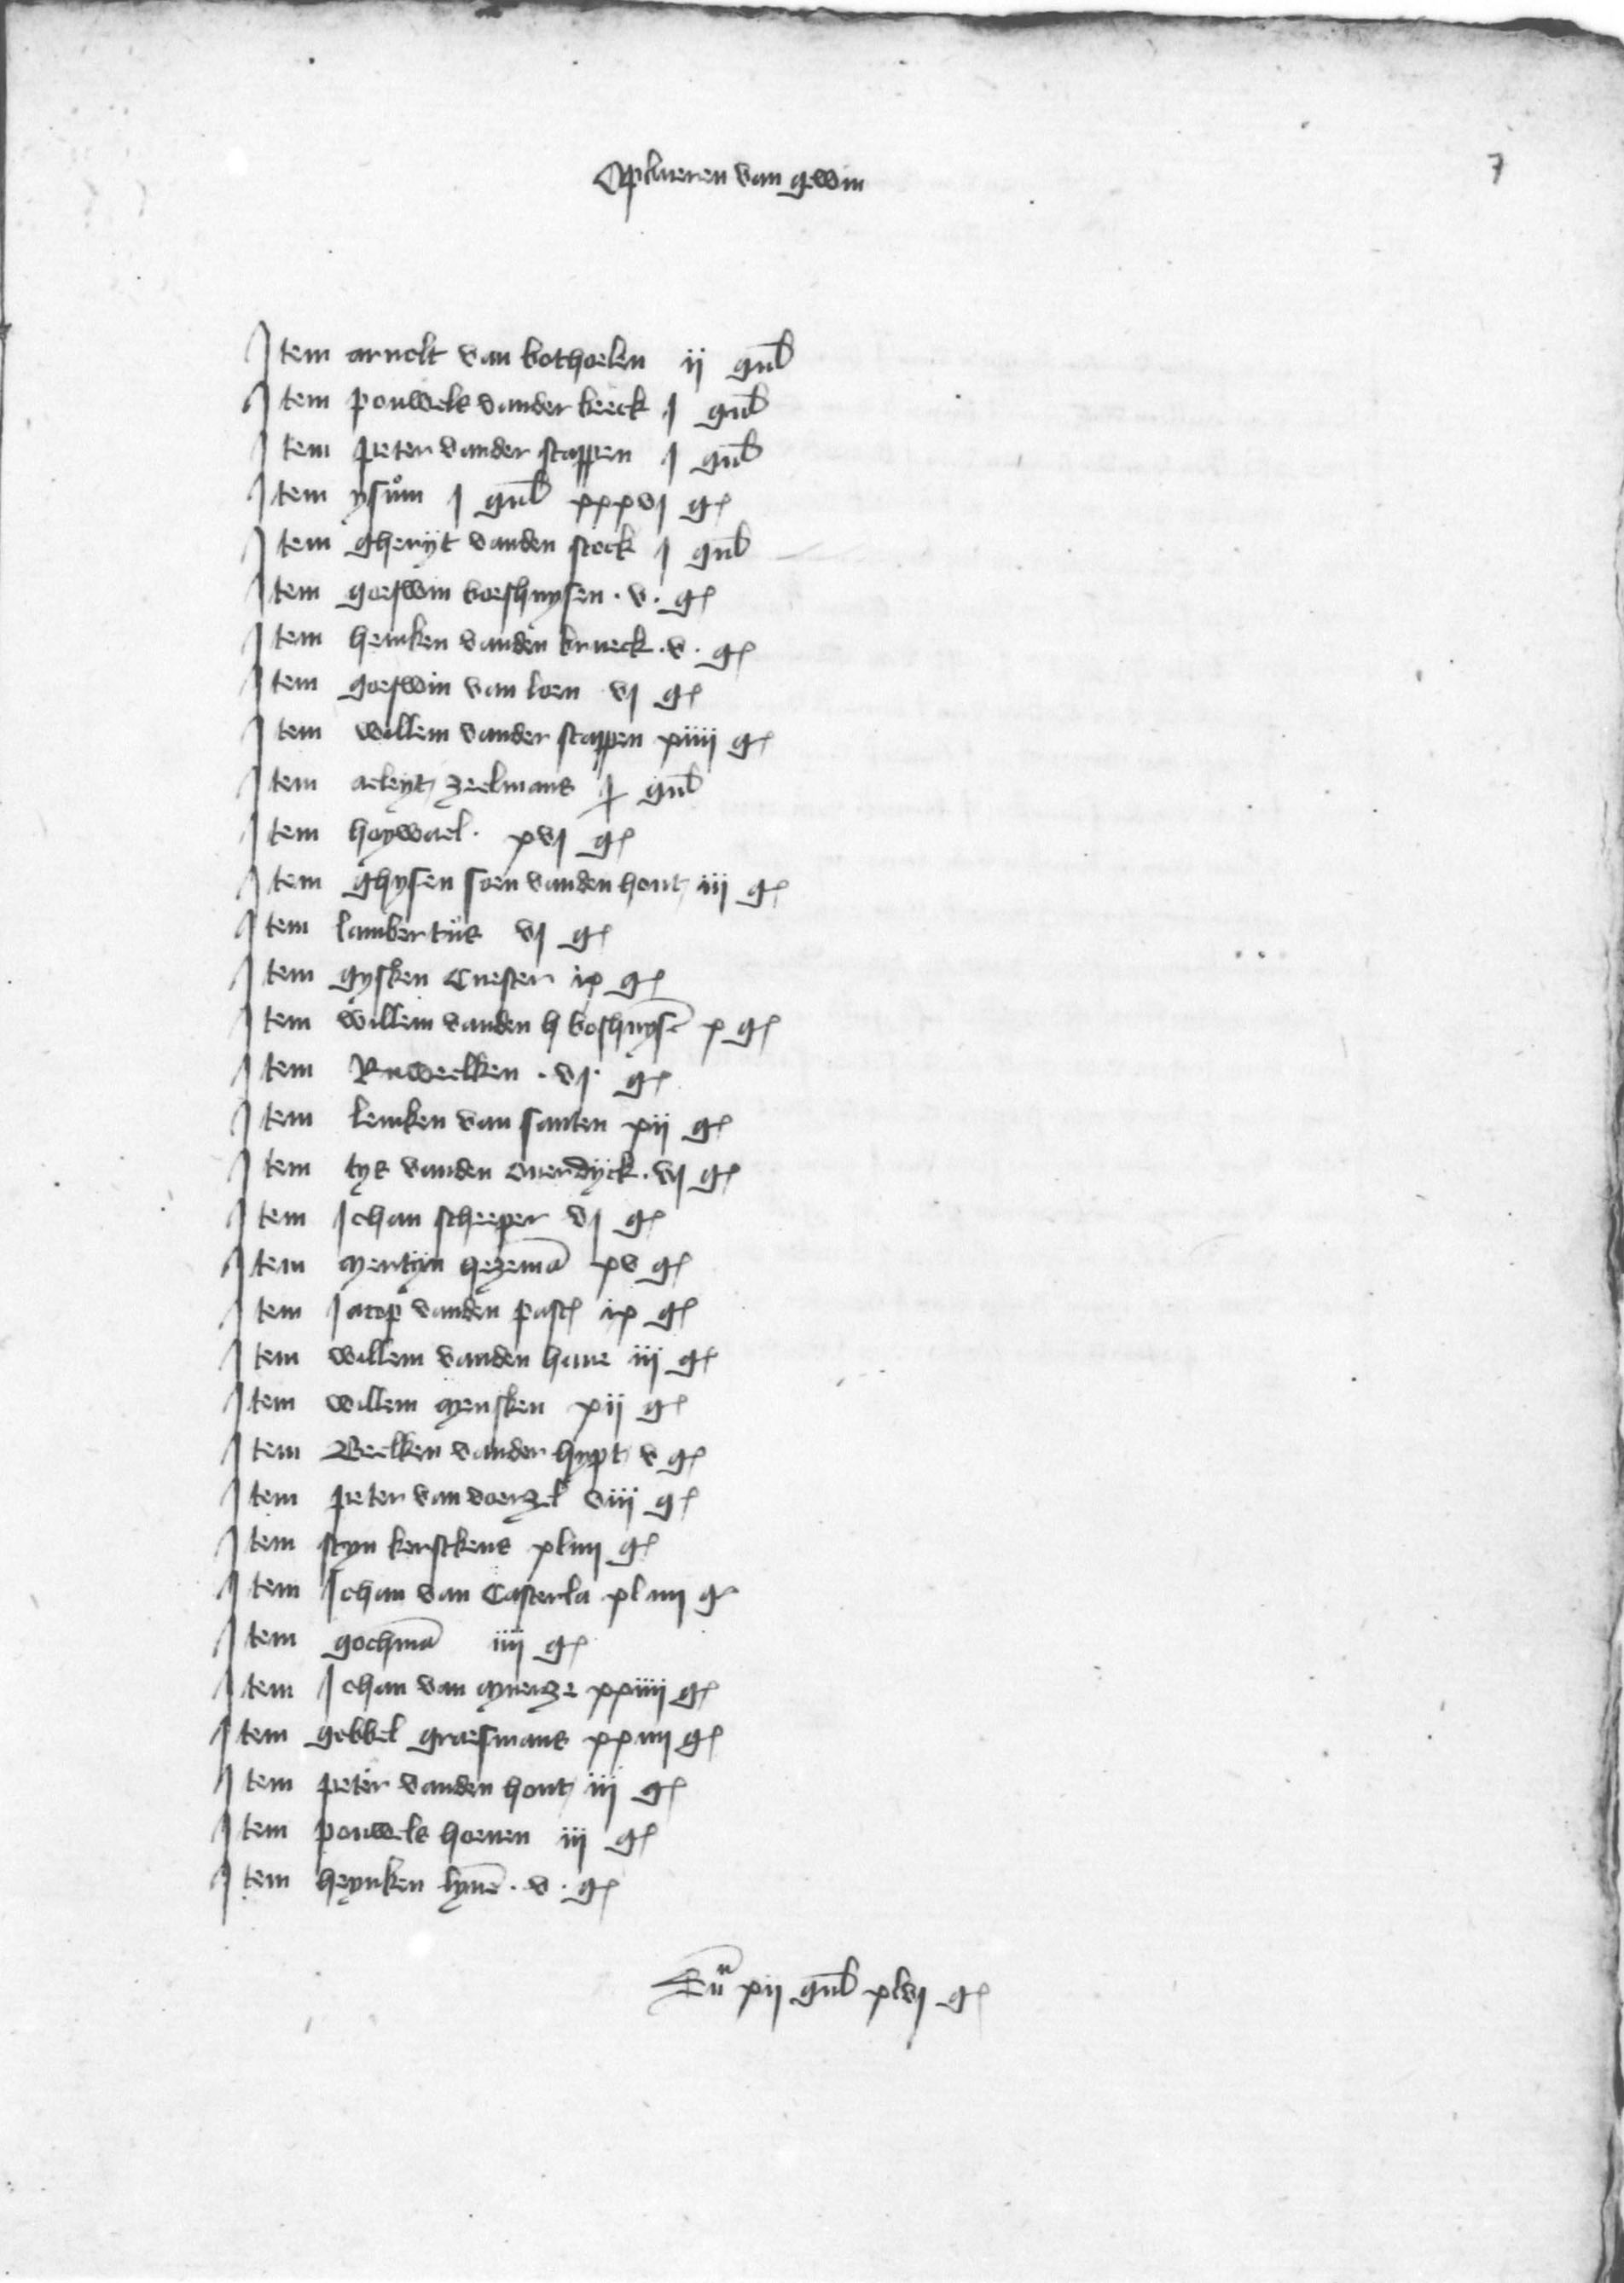 Opbueren van gewin
7
Item arnolt van bothoelen ij gul
Item pouwels vander beeck j gul
Item peter vander stappen j gul
Item ysům j gul xxxvj g
Item gheryt vanden stock j gul
Item goeswin boeshuysen . v . g
Item heinken vanden brueck . v . g
Item goeswin van loen vj g
Item willem vander stappen xiiij g
Item aeleyt zeelmans j gul
Item hoywael . xvj g
Item ghysen soen vanden hout iij g
Item lambertus vj g
Item gysken Cuester ix g
Item willem vanden h boshuyse x g
Item Ruweelken . vj . g
Item lemken van santen xij g
Item tys vanden overdyck . vj g
Item Johan scheeper vj g
Item mertyn hezema xv g
Item Jacop vanden pasch ix g
Item willem vanden have iij g
Item willem mensken xij g
Item Beelken vander hypt v g
Item peter van doerzel viij g
Item styn kerstkens xliiij g
Item Johan van Casterla xliiij g
Item gochma iiij g
Item Johan van myerze xxiiij g
Item gobbel graesmans xxiiij g
Item peter vanden hout iij g
Item pouwels hoeven iij g
Item heynken lyne . v . g
Sum xij gul xlvj g